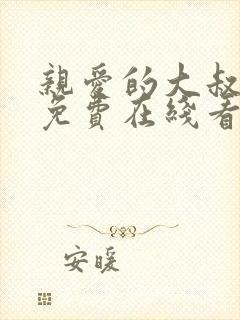 親愛的大叔
免費在綫看
安暖